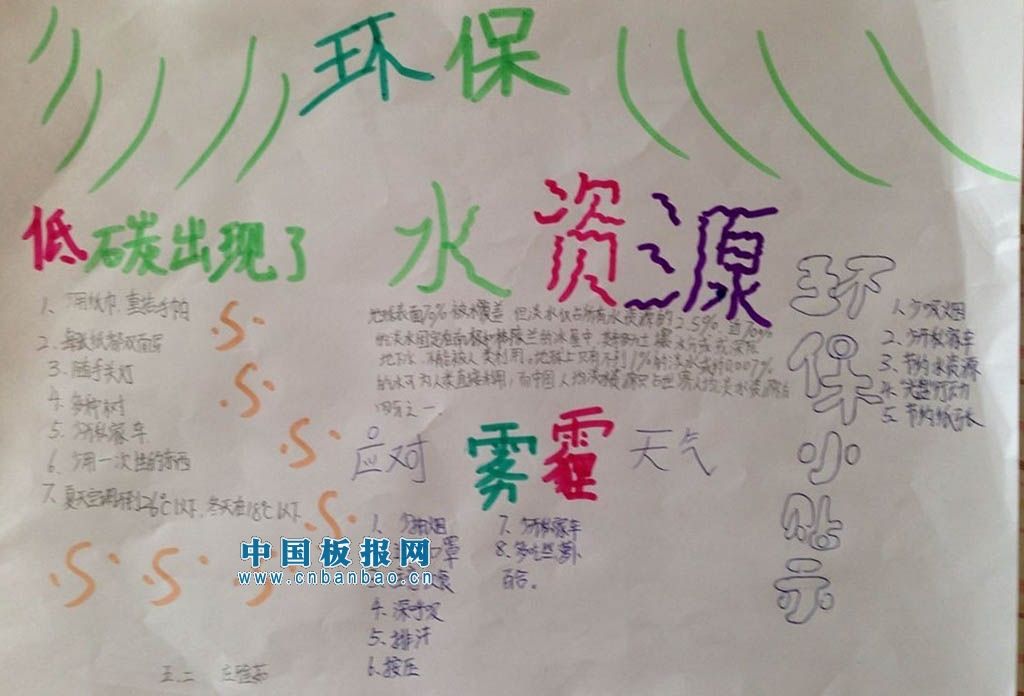 环保
低碳出现了
1、少用纸巾,重拾手帕
2、每张纸都双面写
3、随手关灯
4、多种树
5、少开私家车
6、少用一次性的东西
7、夏天空调开到26℃以下,冬天在18℃以下
五.二
水资源
地球表面70%被水覆盖,但淡水仅占所有水资源的2.5%,近70%
的淡水固定在南极和格陵兰的冰层中,其余多为土壤水分或深层
地下水,不能被人类利用。地球上只有不到1%的淡水或约0.007%
的水可为人类直接利用,而中国人均淡水资源只占世界人均淡水资源的
四分之一。
应对雾霾天气
1、少抽烟
4、深呼吸
5、排汗
6、按压
7、少开私家车
8、多吃丝萝卜
百合。
环保小贴示
1、少吸烟
2、少开私家车
3、节约水资源
4、光盘行动
5、节约纸张
中国板报网
www.cnbanbao.cn